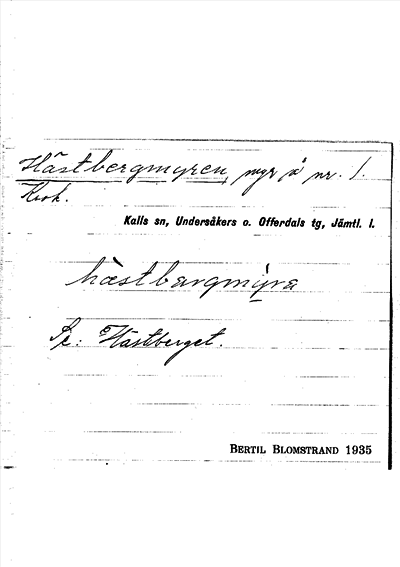 Hästbergmyren, myr å nr. 1.
Krok.
Kalls sn, Undersåkers o. Offerdals tg, Jämtl. l.
hæstbargmýra
Se: Hästberget.
BERTIL BLOMSTRAND 1935